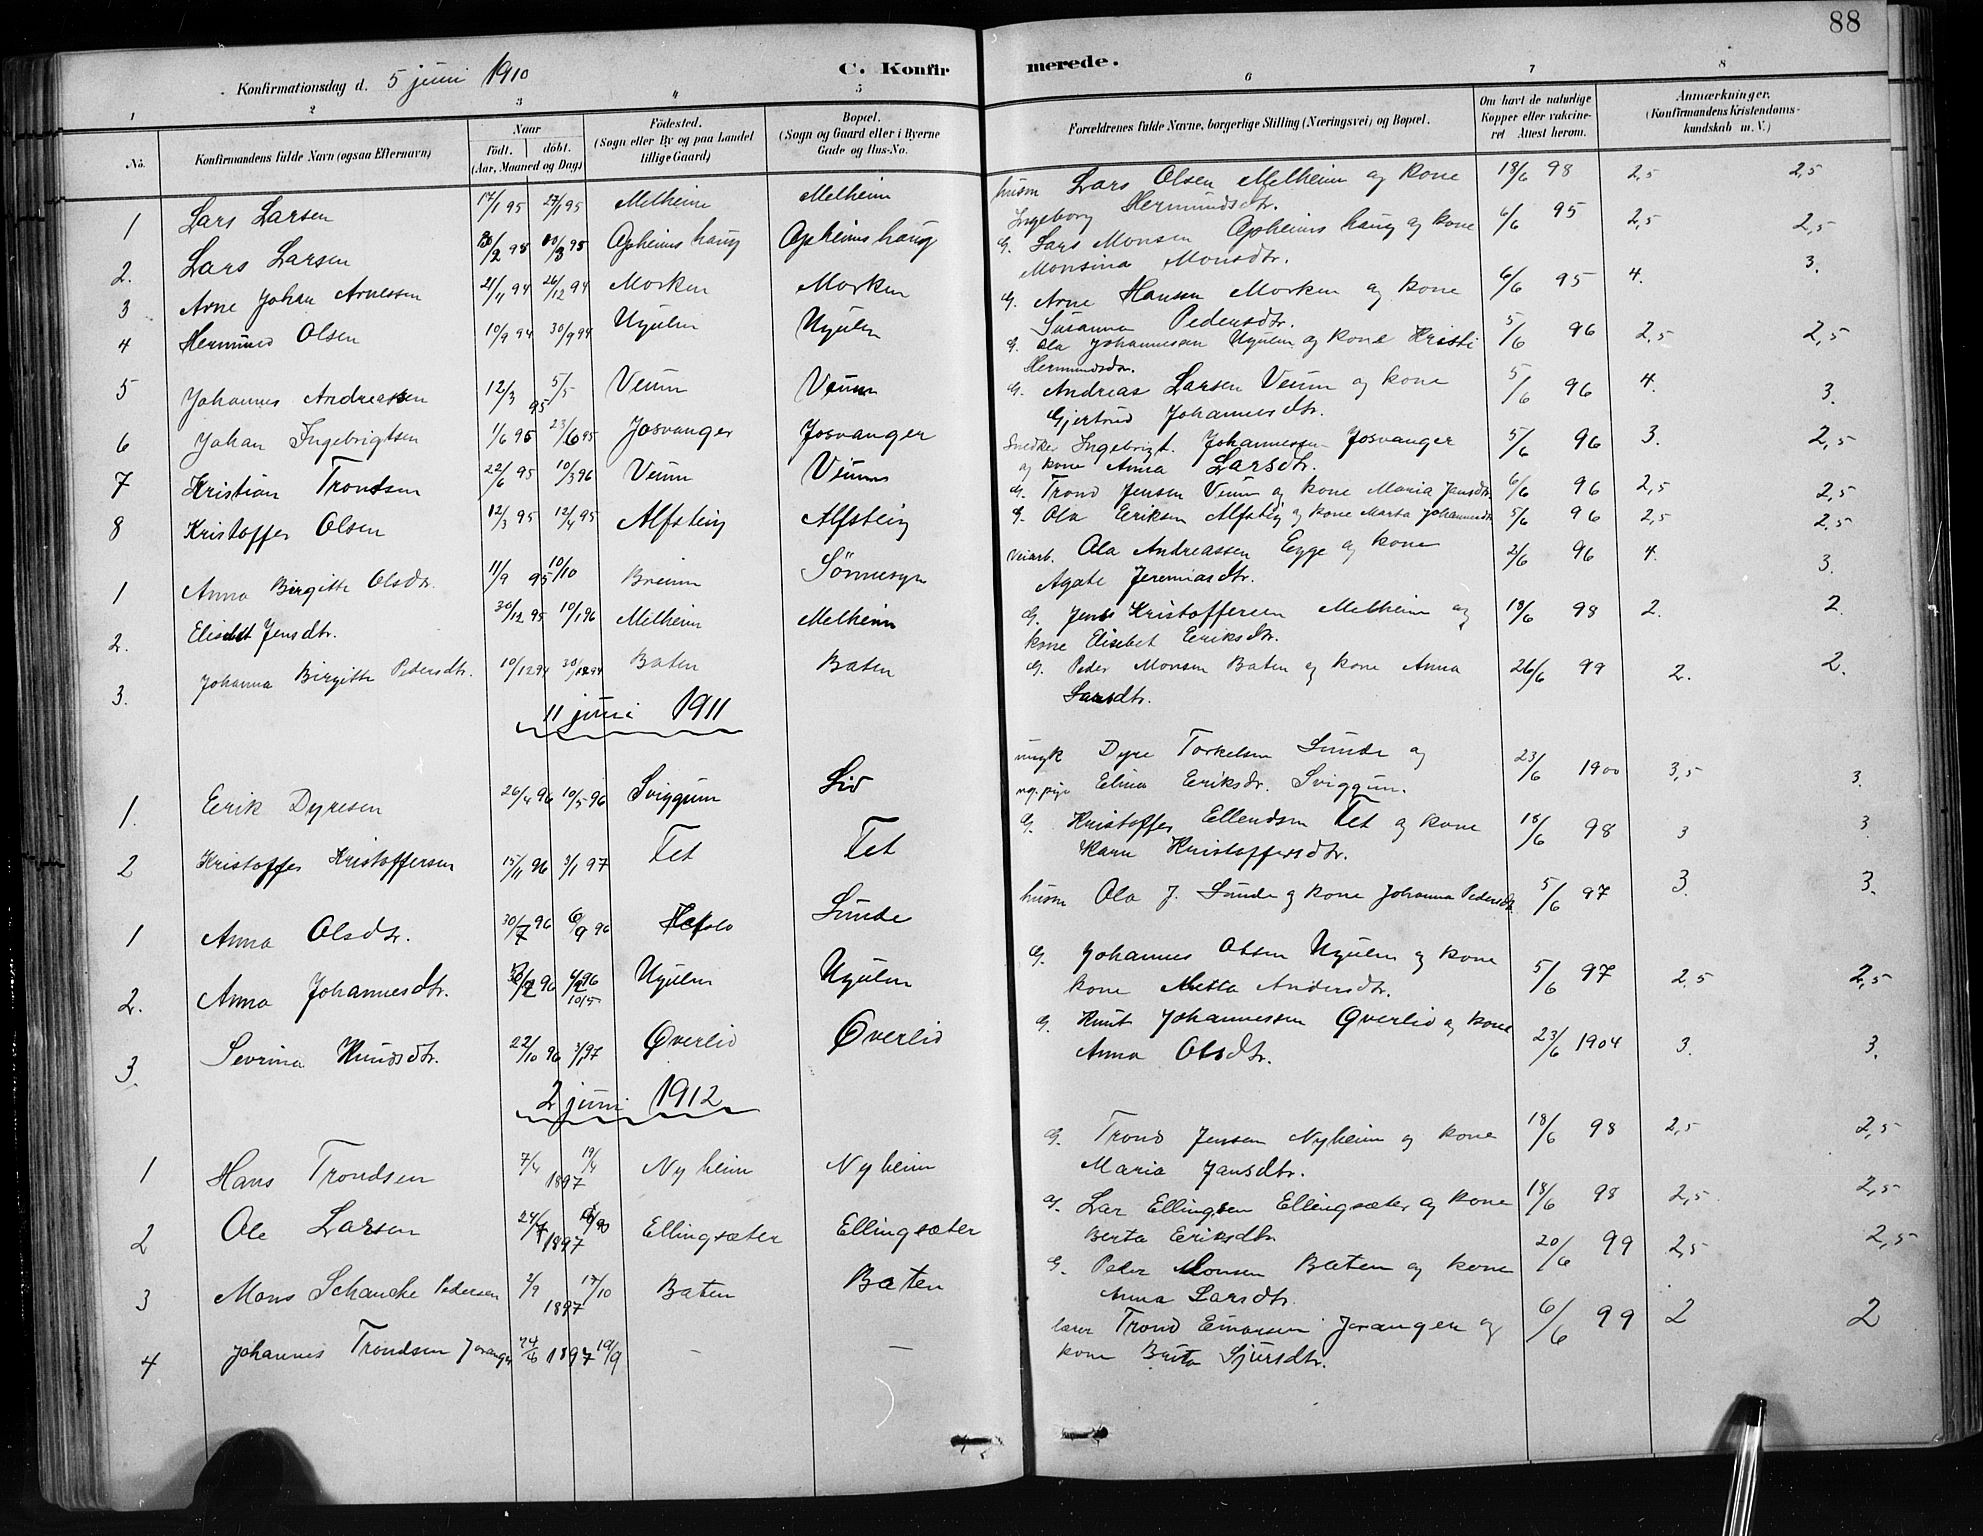 88
Konfirmationsdag d. 5 juni 1910 C. Konfirmerede.
1 2 3 4 5 6 7 8
No. Konfirmandens fulde Navn (ogsaa Efternavn) Naar födt. döbt. (Aar, Maaned og Dag) Födested. (Sogn eller By og paa Landet tillige Gaard) Bopæl. (Sogn og Gaard eller i Byerne Gade og Hus-No. Forældrenes fulde Navne, borgerlige Stilling (Næringsvei) og Bopæl. Om havt de naturlige Kopper eller vakcineret Attest herom. Anmærkninger. (Konfirmandens Kristendomskundskab m. V.)
1 Lars Larsen 17/1 95 27/1 95 Melheim Melheim husm Lars Olsen Melheim og kone 18/6 98 2,5 2,5
Ingeborg Hermundsdtr.
2. Lars Larsen 95 95 Apheimshaug Apheimshaug G. Lars Monsen Apheimshaug og kone 6/6 95 2,5 2,5
Monsina Monsdtr.
3 Arne Johan Arnessen 94 26/12 94 Morken Morken G. Arne Hansen Morken og kone 6/6 95 4. 3.
Susanna Pedersdtr.
4 Hermund Olsen 10/9 94 30/9 94 Ugulen Ugulen G. Ola Johannessen Ugulen og kone Kristi 5/6 96 2,5 2,5
Hermundsdtr.
5 Johannes Andreassen 12/3 95 5/5 Veum Veum G. Andreas Larsen Veum og kone 5/6 96 4. 3.
Gjertrud Johannesdtr.
6 Johan Ingebrigtsen 1/6 95 23/6 95 Josvanger Josvanger Snedker Ingebrigt Johannessen Josvanger 5/6 96 3. 2,5
og kone Anna Larsdtr.
7 Kristian Trondsen 22/6 95 10/3 96 Veum Veum G. Trond Jensen Veum og kone Maria Jansdtr. 6/6 96 2,5 2,5
8 Kristoffer Olsen 12/3 95 12/4 95 Alfsteig Alfsteig G. Ola Eriksen Alfsteig og kone Marta Johannesdtr 5/6 96 2,5 2,5
1 Anna Birgitte Olsdtr. 11/9 95 10/10 Breum Sönnesyn Veiarb. Ola Andreassen Eyge og kone 2/6 96 4. 3.
Agate Jeremiasdtr.
2. Elisabet Jensdtr. 30/12 95 10/1 96 Melheim Melheim G. Jens Kristoffersen Melheim og 18/6 98 2. 2.
kone Elisebet Eeriksdtr.
3. Johanna Birgitte Pedersdtr. 10/12 94 30/12 94 Baten Baten G. Peder Monsen Baten og kone Anna 26/6 99 2. 2.
Larsdtr.
11 juni 1911
1. Eerik Dyresen 26/4 96 10/5 96 Sviggum Lid ungk Dyre Torkelsen Sunde og 23/6 1900 3,5 3.
ug. pige Elina Eeriksdr. Sviggum.
2 Kristoffer Kristoffersen 15/11 96 3/1 97 Tet Tet G. Kristoffer Ellendsen Tet og kone 18/6 98 3 3.
Kari Kristoffersdtr.
1 Anna Olsdtr. 30/7 96 6/9 96 Sunde husm Ola J. Sunde og kone Johanna Pedersdtr 5/6 97 3. 3.
2. Anna Johannesdtr. 96 10/5 Ugulen Ugulen G. Johannes Olsen Ugulen og kone 5/6 97 2,5 2,5
kone Metta Andersdtr.
3. Sevrina Knudsdtr. 22/10 96 3/1 97 Overlid Overlid G. Knut Johannessen Överlid og kone 23/6 1904 3. 3.
Anna Olsdtr.
2 juni 1912
1 Hans Trondsen 7/4 1897 19/4 Nyheim Nyheim G. Trond Jensen Nyheim og kone 18/6 98 2,5 2,5
Maria Jansdtr.
2 Ole Larsen 1897 Ellingsæter Ellingsæter G. Lar Ellingsen Ellingsæter og kone 18/6 98 2,5 2,5
Berta Eriksdtr
3 Mons Schancke Pedersen 2/9 1897 17/10 Baten Baten G. Peder Monsen Bæten og kone 20/6 99 2,5 2,5
Anna Larsdtr.
4 Johannes Trondsen Joranger 24/6 1897 19/9 — — lærer Trond Joranger og 6/6 99 2 2
kone Brita Sjursdtr.